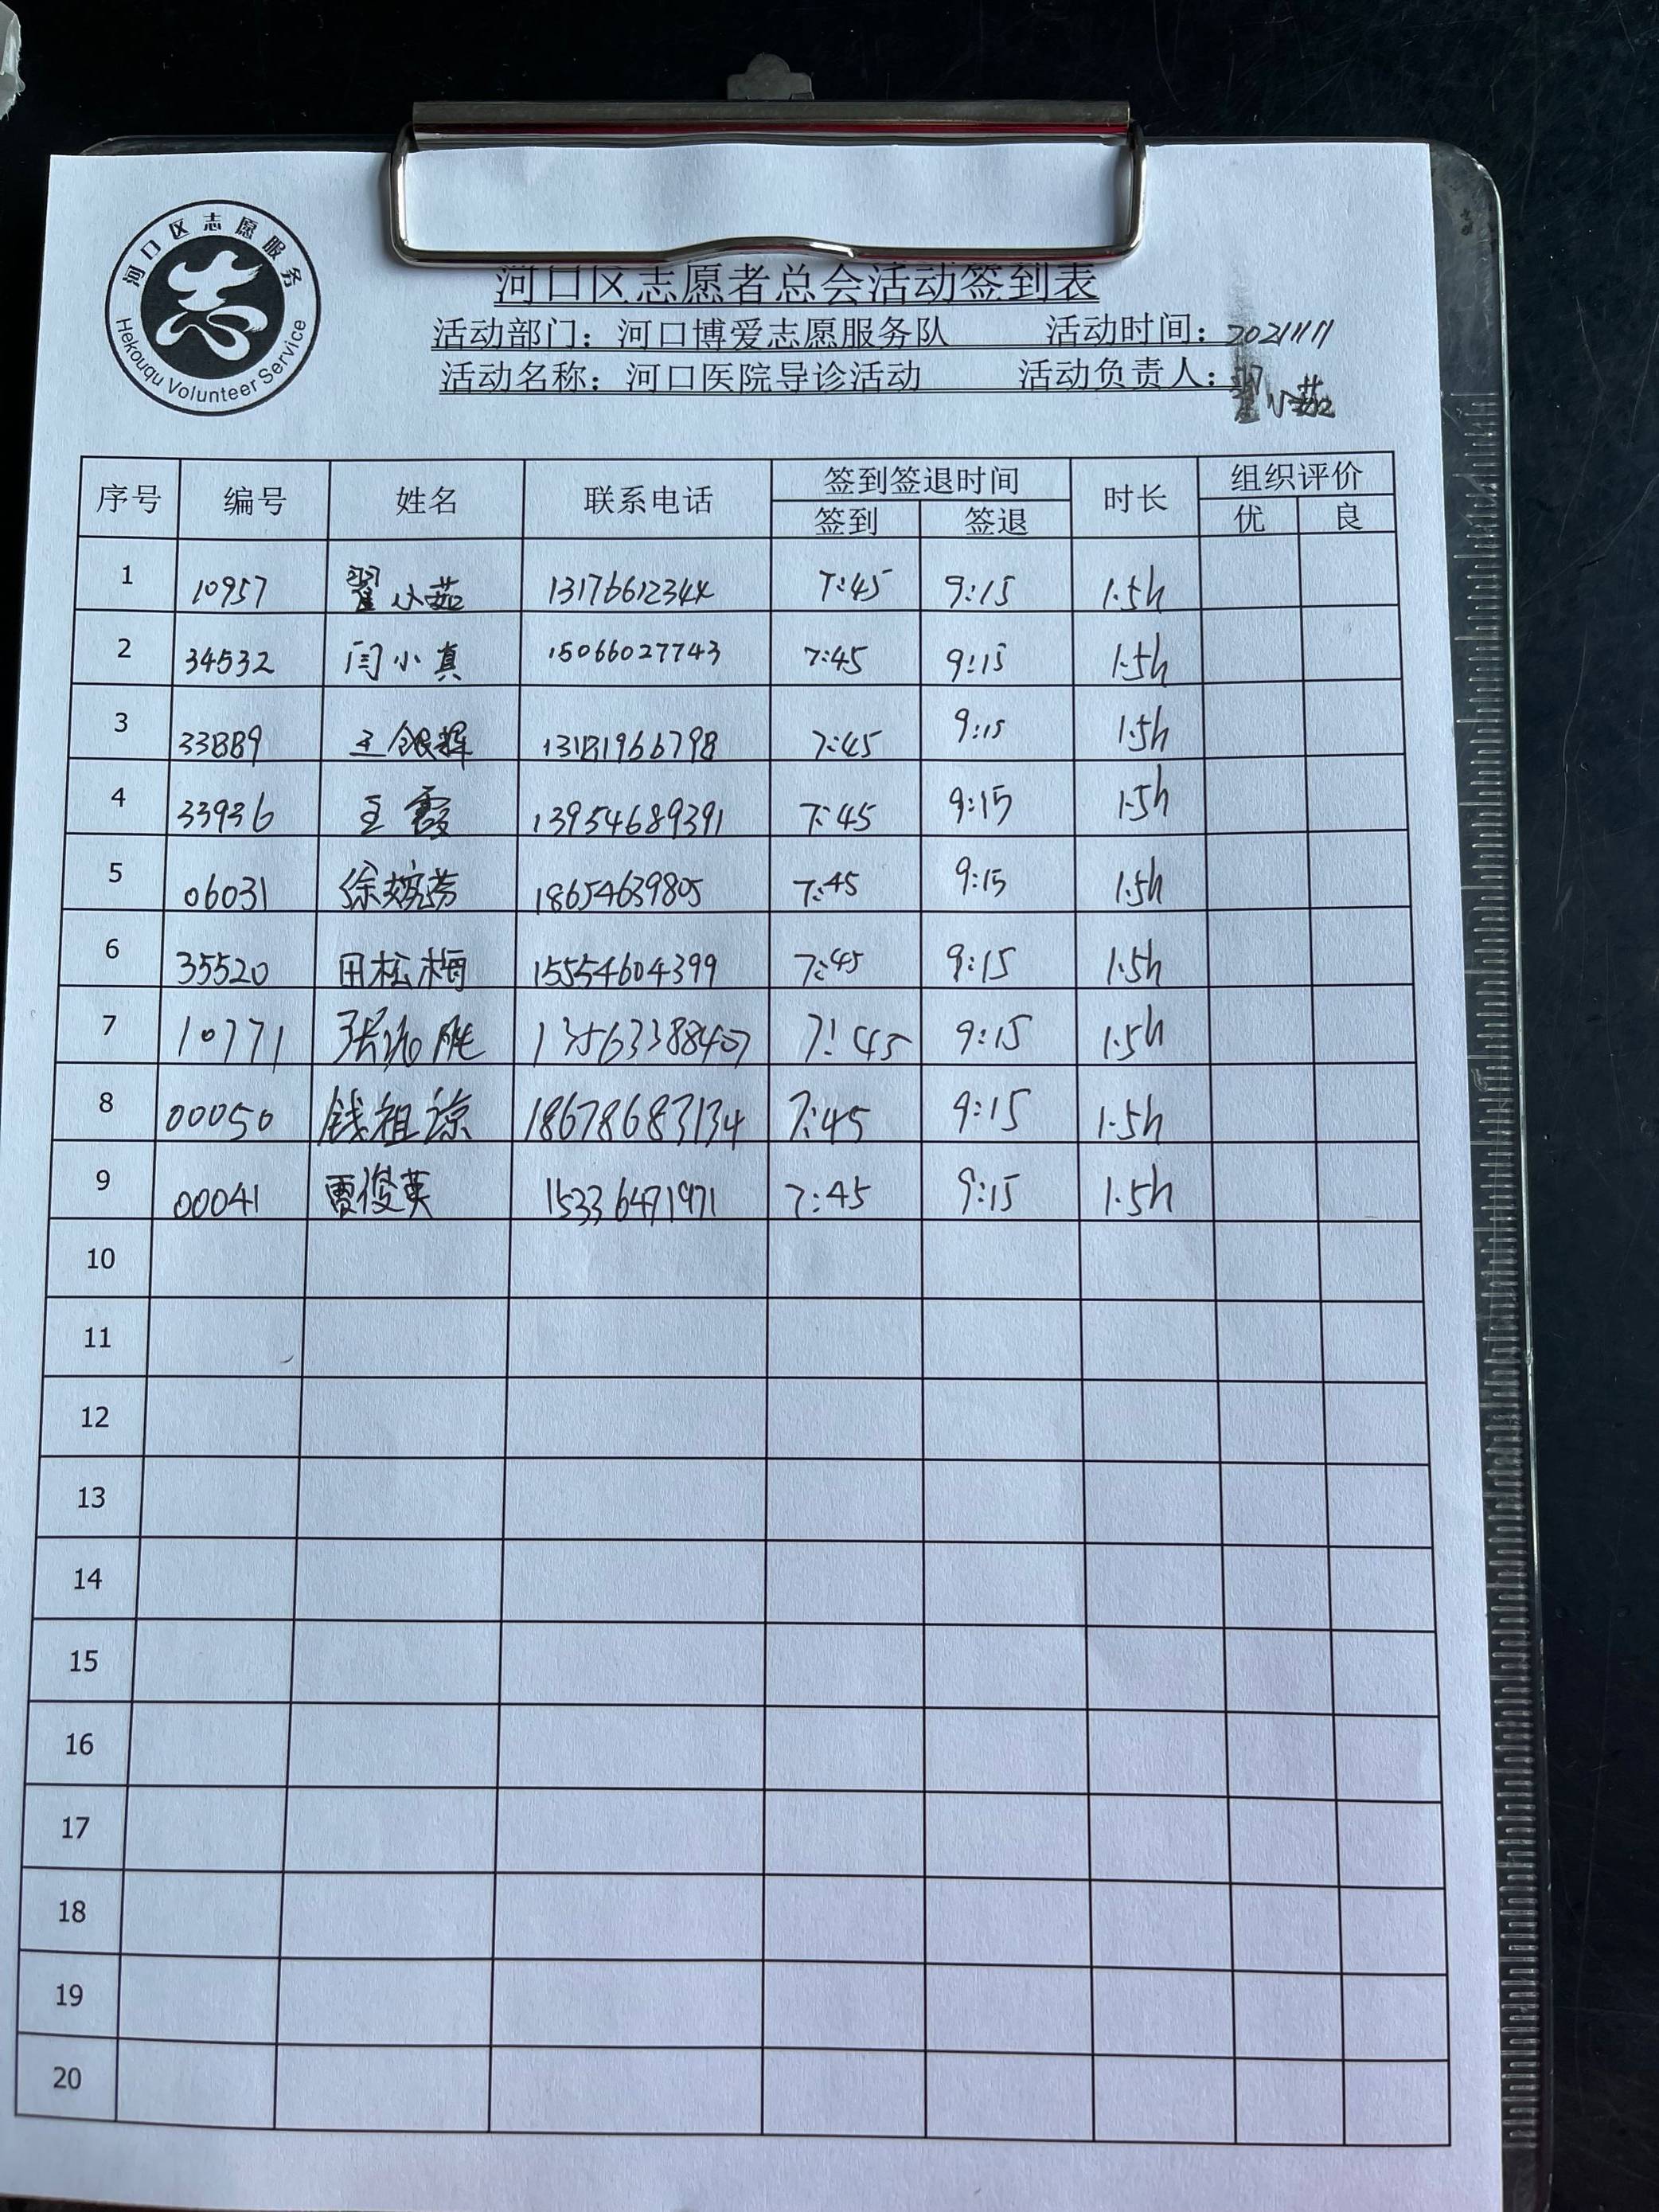 河口区志愿服务
Hekouqu Volunteer Service
河口区志愿者总会活动签到表
活动部门：河口博爱志愿服务队 活动时间：2021/11/11
活动名称：河口医院导诊活动 活动负责人：翟小茹
序号 编号 姓名 联系电话 签到签退时间 时长 组织评价
签到 签退 优 良
1 10957 翟小茹 13176612344 7:45 9:15 1.5h
2 34532 闫小真 15066027743 7:45 9:15 1.5h
3 33889 王银辉 13181966798 7:45 9:15 1.5h
4 33936 王霞 13954689391 7:45 9:15 1.5h
5 06031 18654639805 7:45 9:15 1.5h
6 35520 田松梅 15554604399 7:45 9:15 1.5h
7 10771 7:45 9:15 1.5h
8 00050 钱祖谅 18678683134 7:45 9:15 1.5h
9 00041 贾俊英 15336471971 7:45 9:15 1.5h
10
11
12
13
14
15
16
17
18
19
20